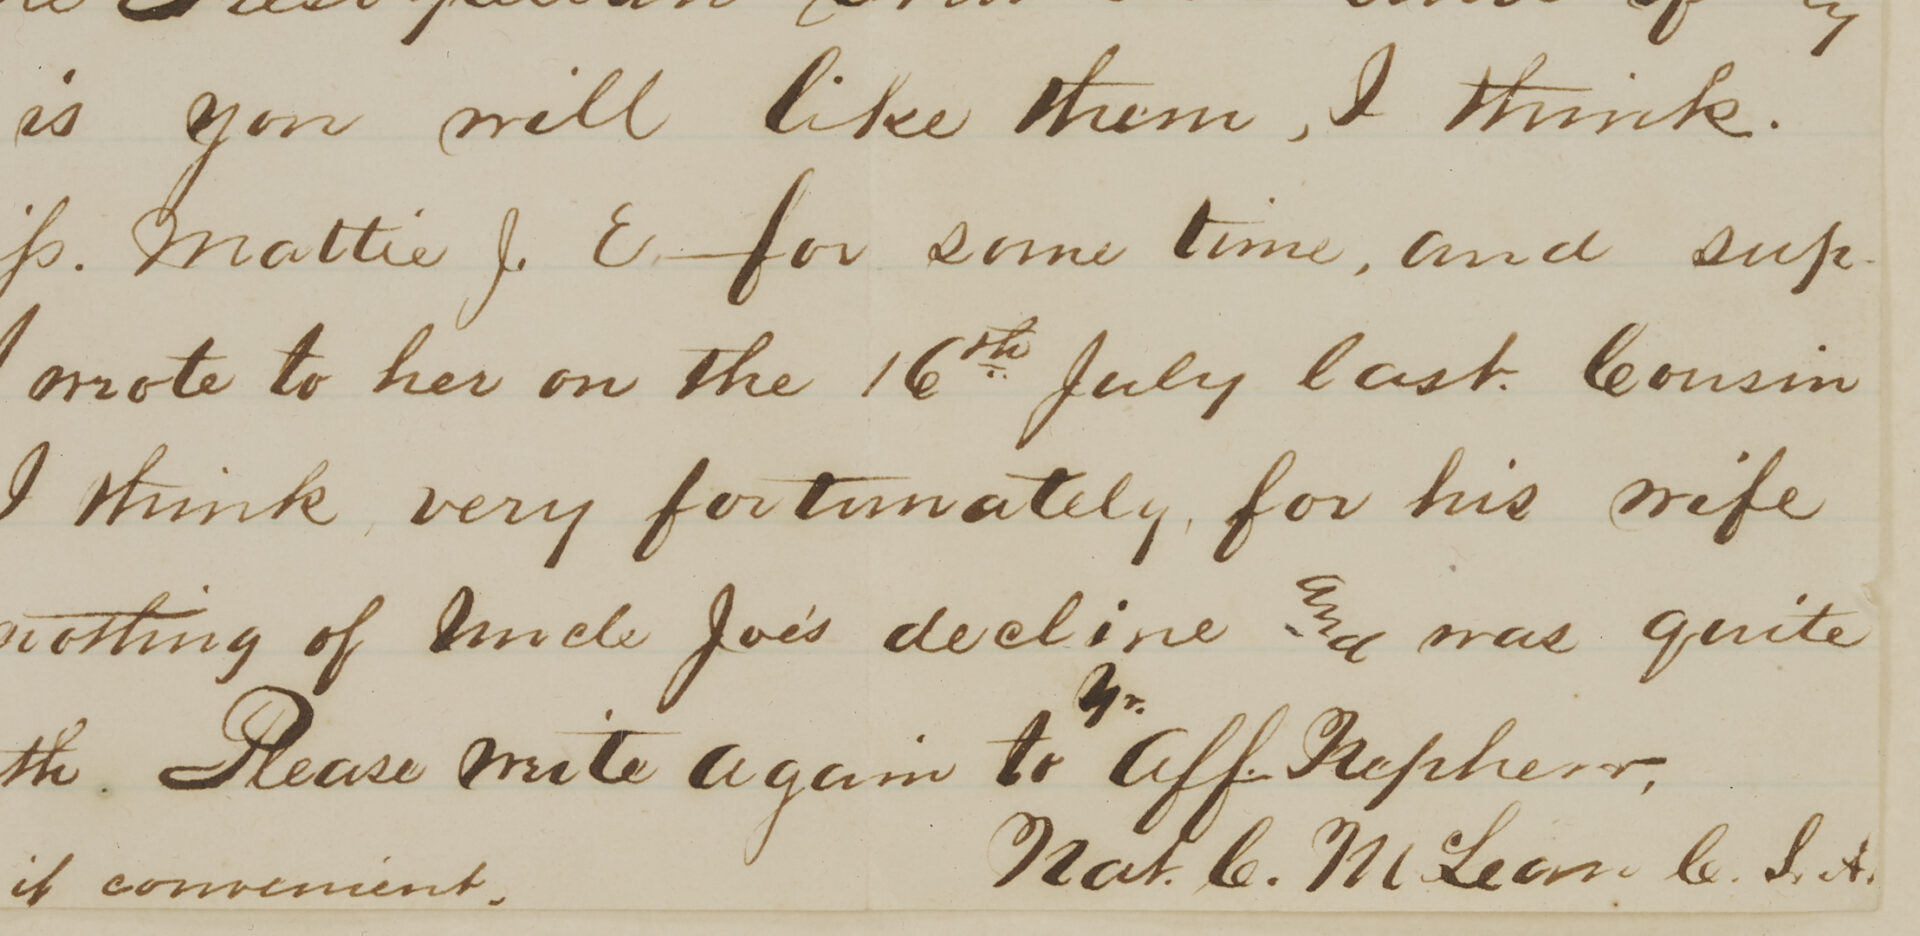 is you will like them, I think.
Mattie J. E. — for some time, and sup-
I wrote to her on the 16th July last. Cousin
I think very fortunately, for his wife
nothing of Uncle Joe's decline and was quite
th. Please write again to yr. Aff. Nephew,
Nat. C. McLean C. S. A.
if convenient.